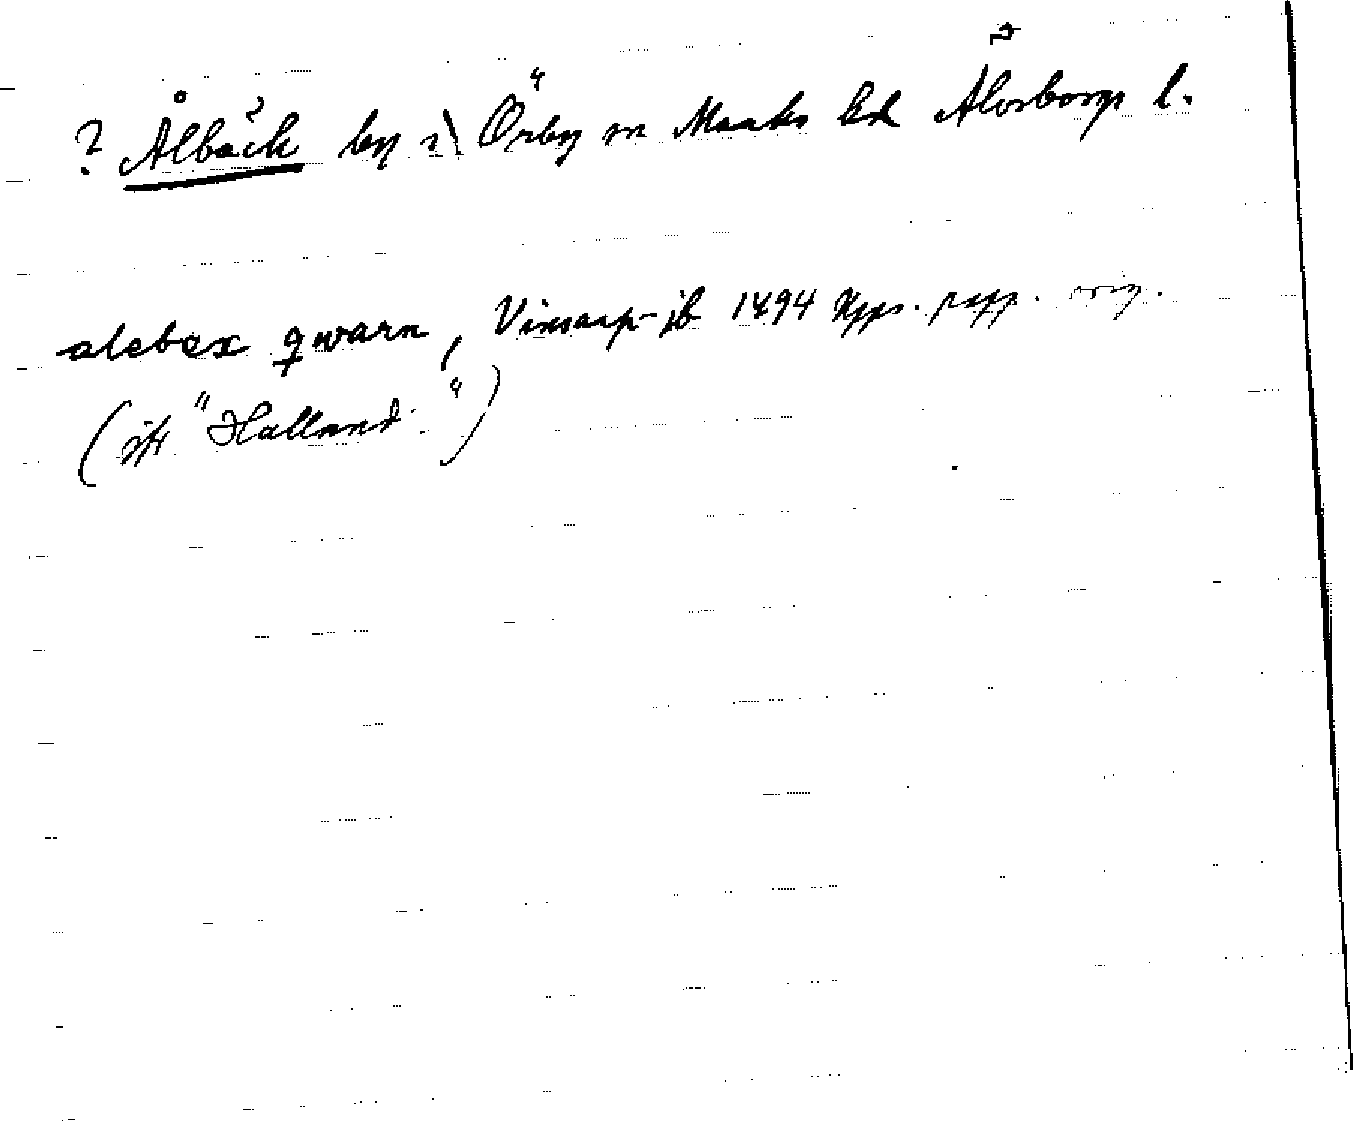 ? Ålbäck by i Örby sn Marks hd Älvsborgs l.
alebæx qwarn, Vinsarp-jb 1494 Upps. papp. orig.
(itr "Halland")